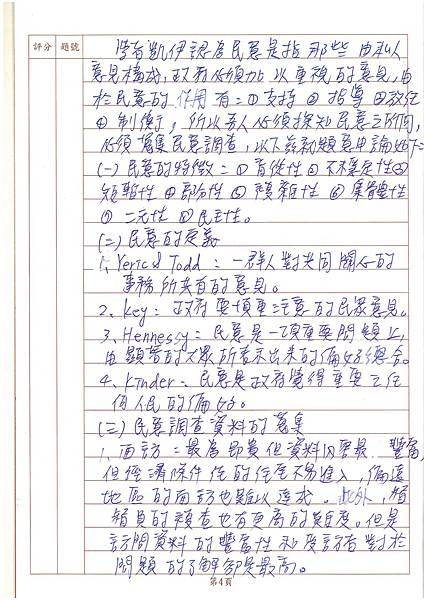 評分 題號
學者凱伊認為民意是指那些由私人
意見構成，政府必須加以重視的意見，由
於民意的作用有：①支持 ② 指導 ③放任
④ 制衡，所以吾人必須探知民意之所向，
必須蒐集民意調查，以下茲就題意申論如下：
(一) 民意的特徵：① 盲從性 ② 不穩定性 ③
短暫性 ④ 部分性 ⑤ 複雜性 ⑥ 集體性
⑦ 二元性 ⑧民主性。
(二) 民意的定義
1、Yeric & Todd：一群人對共同關心的
事務所共有的意見。
2、Key：政府要慎重注意的民眾意見。
3、Hennessy：民意是一項重要問題上，
由顯著的大眾所表示出來的偏好總合。
4、Kinder：民意是政府覺得重要之任
何人民的偏好。
(三) 民意調查資料的蒐集
1、面訪：最為耗費但資料內容最 豐富，
但經濟條件佳的住宅不易進入，偏遠
地區的面訪也難以達成。此外，
員的複查也有更高的難度。但是
訪問資料的豐富性和受訪者對於
問題的了解卻是最高。
第4頁